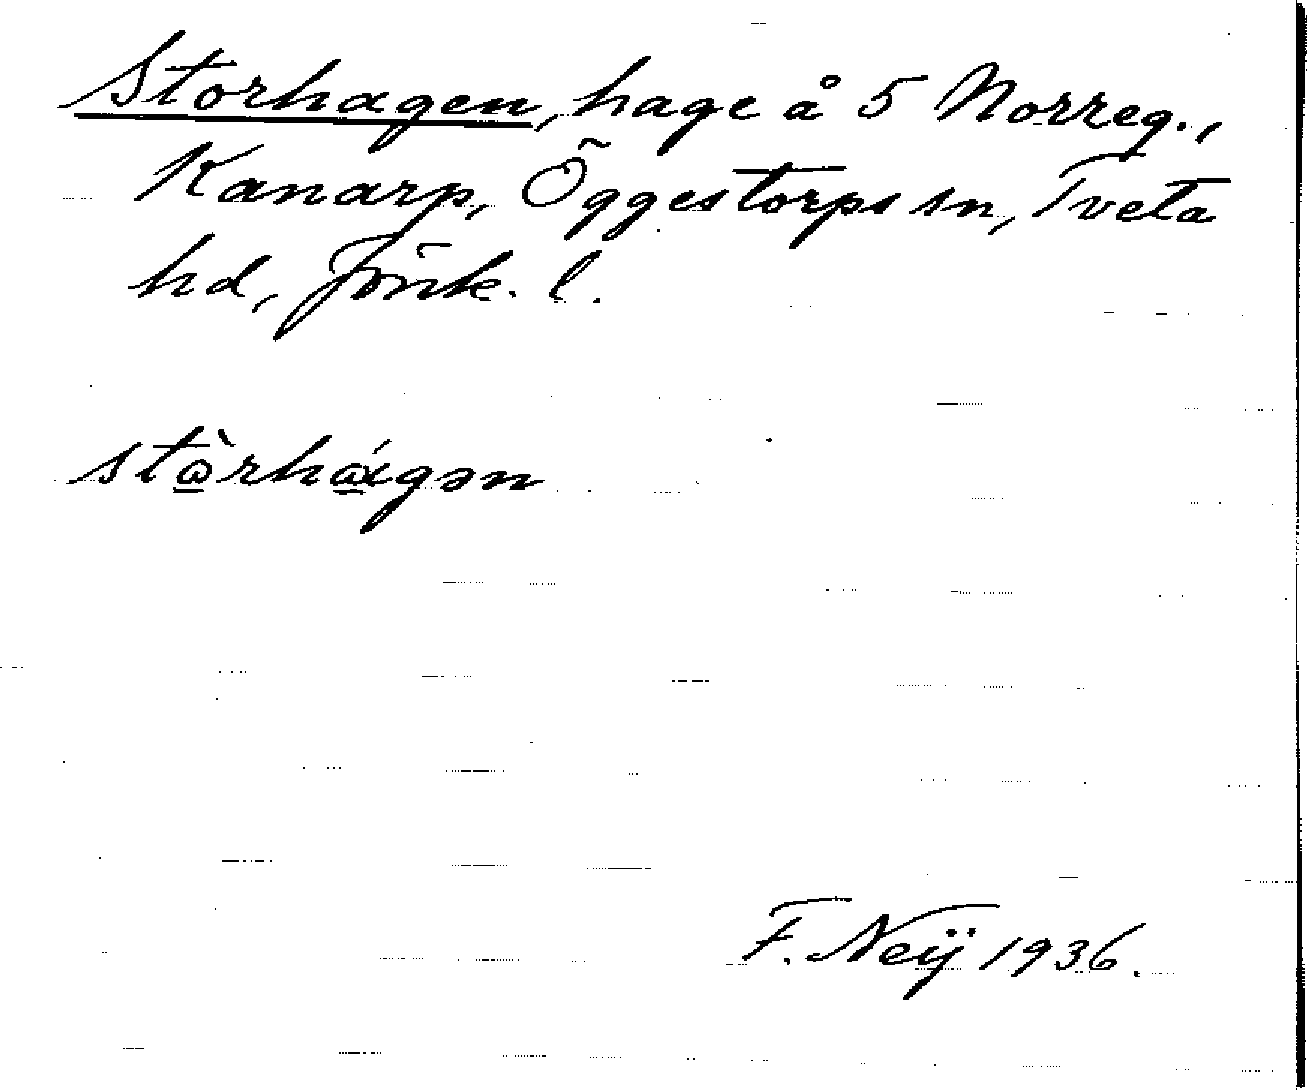 Storhagen, hage å 5 Norreg.,
Kanarp, Öggestorps sn, Tveta
hd, Jönk. l.
stὼ̲rhά̲gən
F. Neÿ 1936.